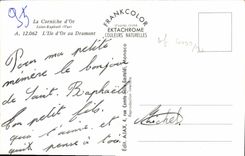 La Corniche d'Or
Saint-Raphaël (Var)
A. 12.062 L'Ile d'Or au Dramont
FRANKCOLOR
EKTACHROME
COULEURS NATURELLES
Pour ma petite
mémère le bonjour
de Saint-Raphaël
Son petit fils
qui l'aime et
qui pense à toi
Michel